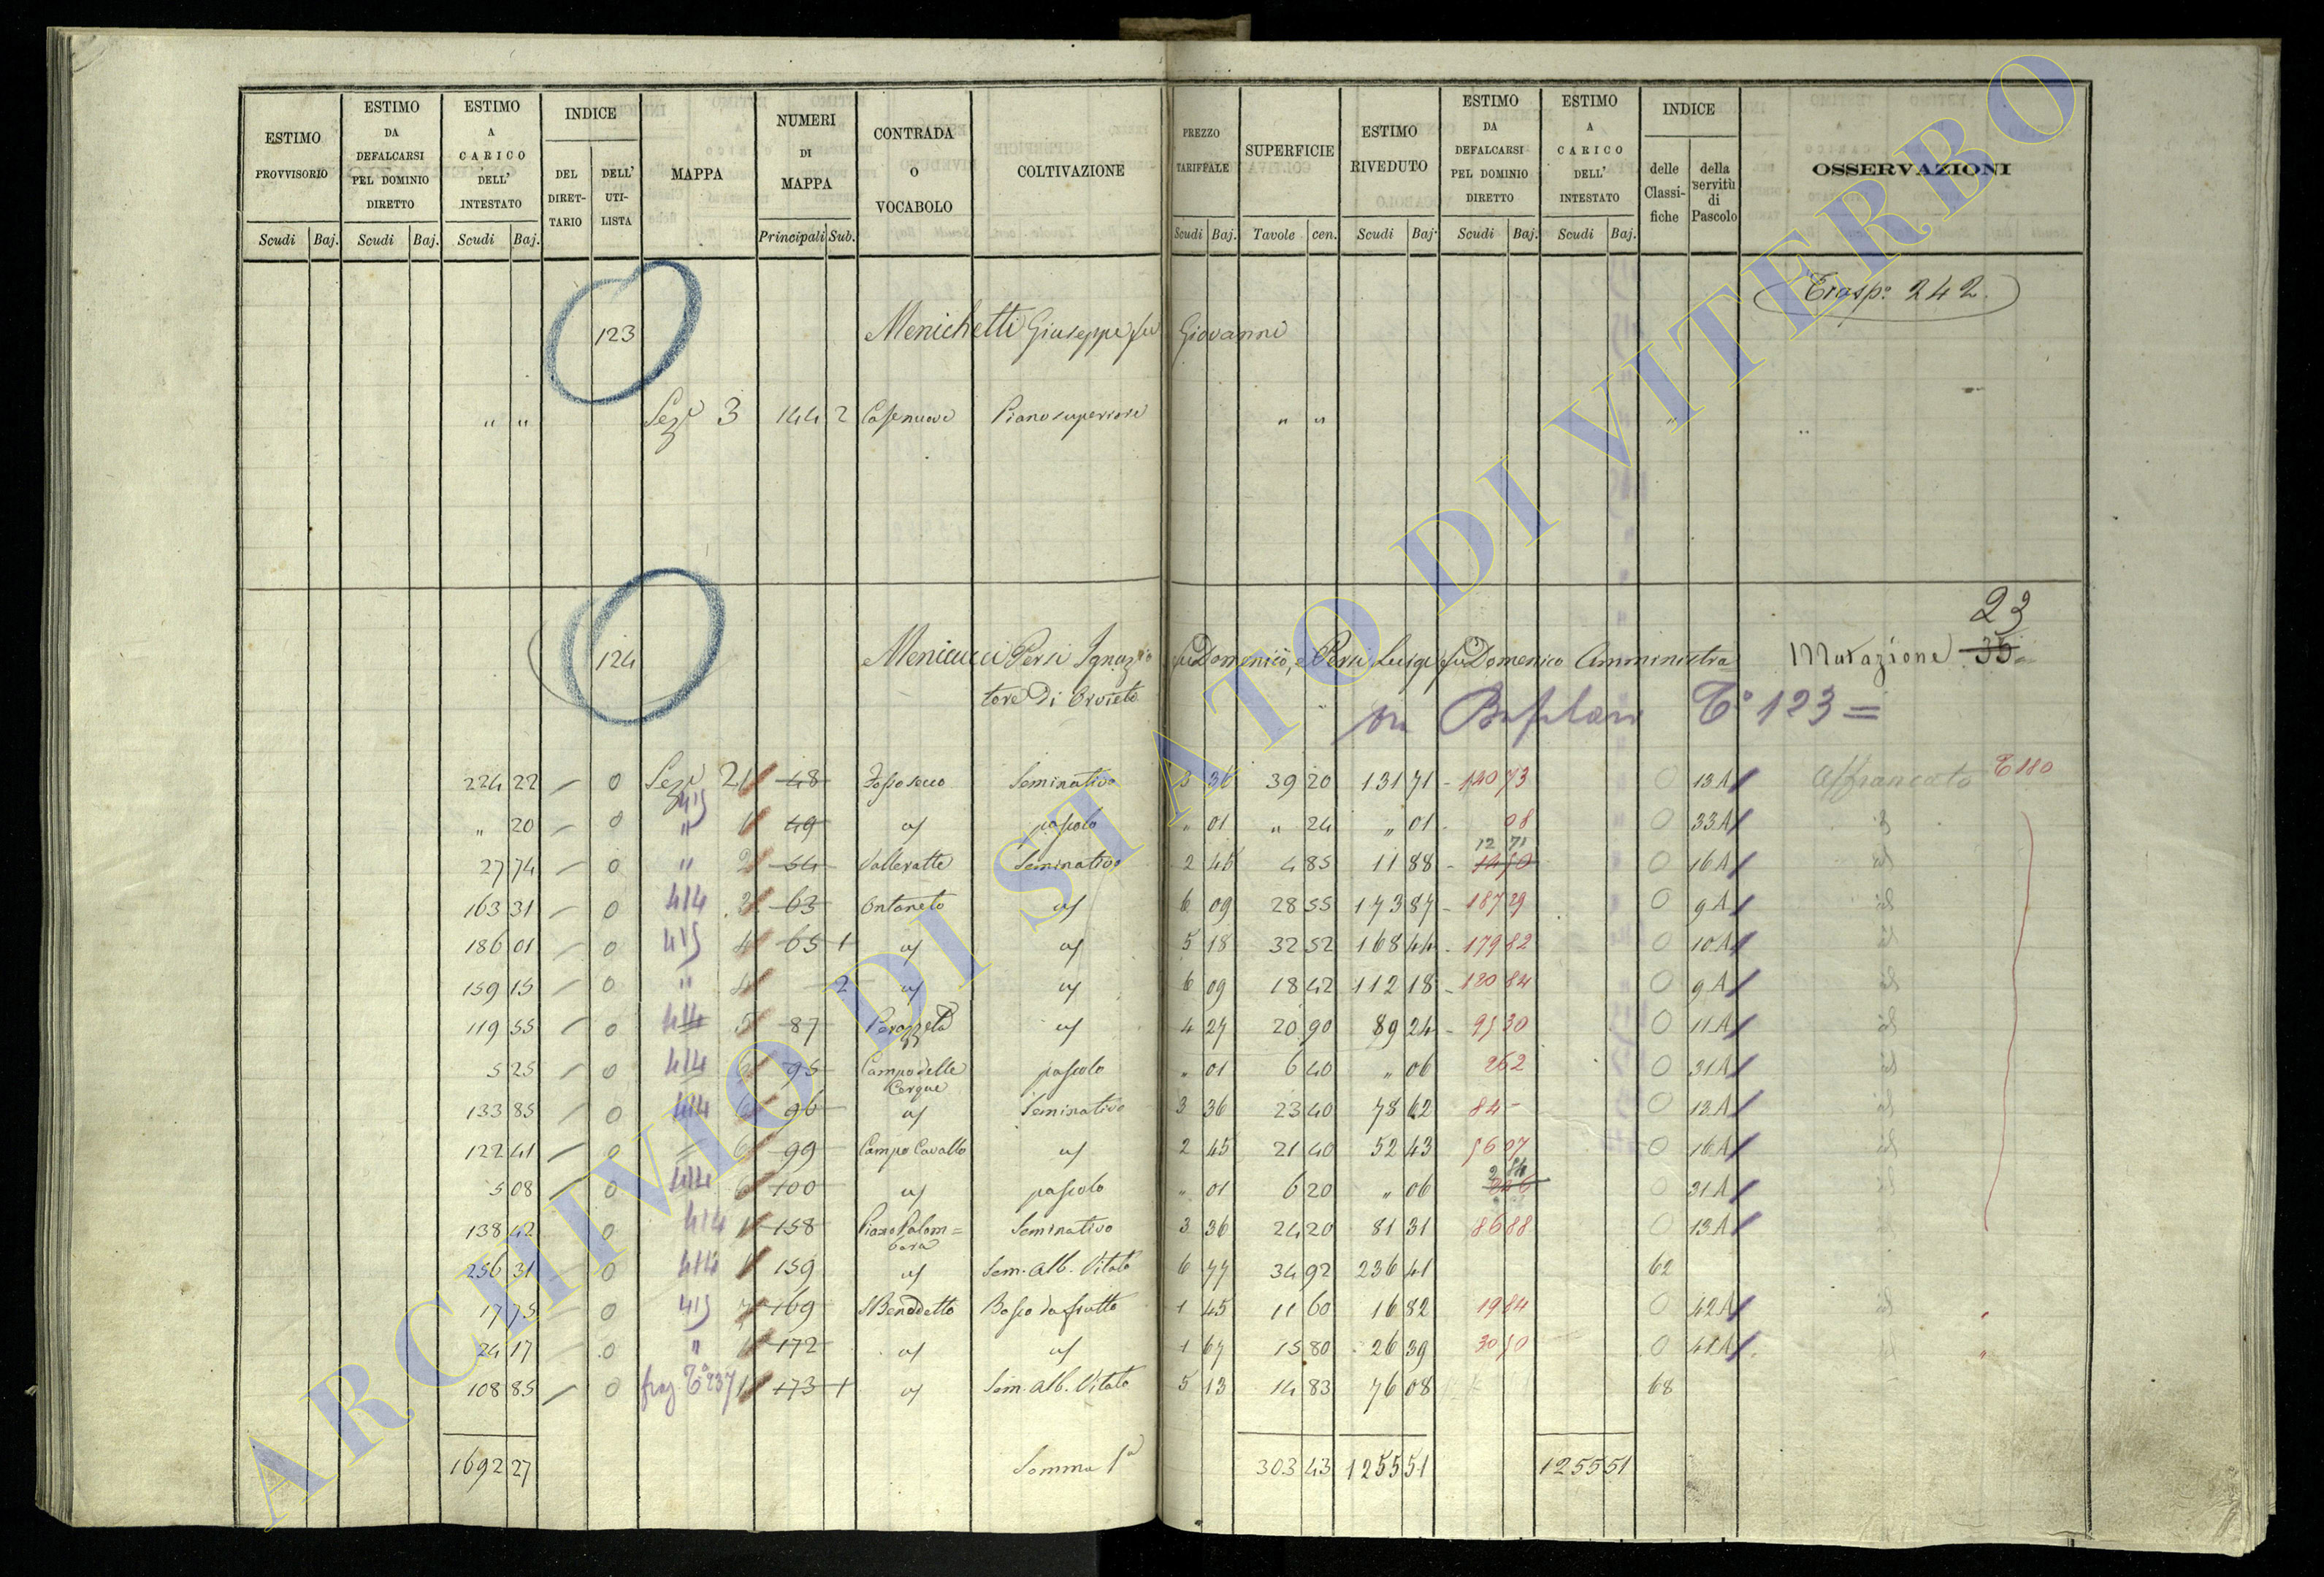 ESTIMO PROVVISORIO | ESTIMO DA DEFALCARSI PEL DOMINIO DIRETTO | ESTIMO A CARICO DELL' INTESTATO | INDICE DEL DIRETTARIO | DELL' UTILISTA | MAPPA | NUMERI DI MAPPA | CONTRADA O VOCABOLO | COLTIVAZIONE | PREZZO TARIFFALE | SUPERFICIE | ESTIMO RIVEDUTO | ESTIMO DA DEFALCARSI PEL DOMINIO DIRETTO | ESTIMO A CARICO DELL' INTESTATO | INDICE delle Classifiche | della servitù di Pascolo | OSSERVAZIONI
Scudi Baj. | Scudi Baj. | Scudi Baj. | Principali Sub. | Scudi Baj. | Tavole cen. | Scudi Baj. | Scudi Baj. | Scudi Baj.
Trasp.º 242.
123 Menichetti Giuseppe fu Giovanni
" " Sez.e 3 144 2 Casenuove Piano superiore " "
23
124 Menicucci Persi Ignazio fu Domenico, e Persi Luigi fu Domenico Amministra Mutazione 35
tore Di Orvieto
Tº 123 =
224 22 0 Sez.e 2 1 48 Fossosecco Seminativo 3 36 39 20 131 71 140 73 0 13 A Affrancato T 180
415
" 20 0 " 1 49 id pascolo " 01 " 24 " 01 08 0 33 A id
12 71
27 74 0 " 2 54 Valleratte Seminativo 2 45 4 85 11 88 0 16 A id
163 31 0 414 2 63 Ontaneto id 6 09 28 55 173 87 187 29 0 9 A id
186 01 0 415 4 65 1 id id 5 18 32 52 168 44 179 82 0 10 A id
159 15 0 " 4 2 id id 6 09 18 42 112 18 120 84 0 9 A id
119 55 0 414 5 87 Perazzeta id 4 27 20 90 89 24 95 30 0 11 A id
5 25 0 414 6 95 Campo delle Cerque pascolo " 01 6 40 " 06 2 62 0 31 A id
133 85 0 414 6 96 id Seminativo 3 36 23 40 78 62 84 - 0 13 A id
122 41 0 6 99 Campo Cavallo id 2 45 21 40 52 43 56 07 0 16 A id
5 08 0 414 6 100 id pascolo " 01 6 20 " 06 0 31 A id
138 42 0 414 1 158 Piano Palombara Seminativo 3 36 24 20 81 31 86 88 0 13 A
256 31 0 414 1 159 id Sem. Alb. Vitato 6 77 34 92 236 41 62
17 75 0 415 7 169 S Benedetto Bosco da frutto 1 45 11 60 16 82 19 84 0 42 A id
24 17 0 " 172 id id 1 67 15 80 26 39 30 50 0 41 A id
108 85 0 fraz Tº 237 1 173 1 id Sem. Alb. Vitato 5 13 14 83 76 08 68
1692 27 Somma 1ª 303 43 1255 51 1255 51
ARCHIVIO DI STATO DI VITERBO